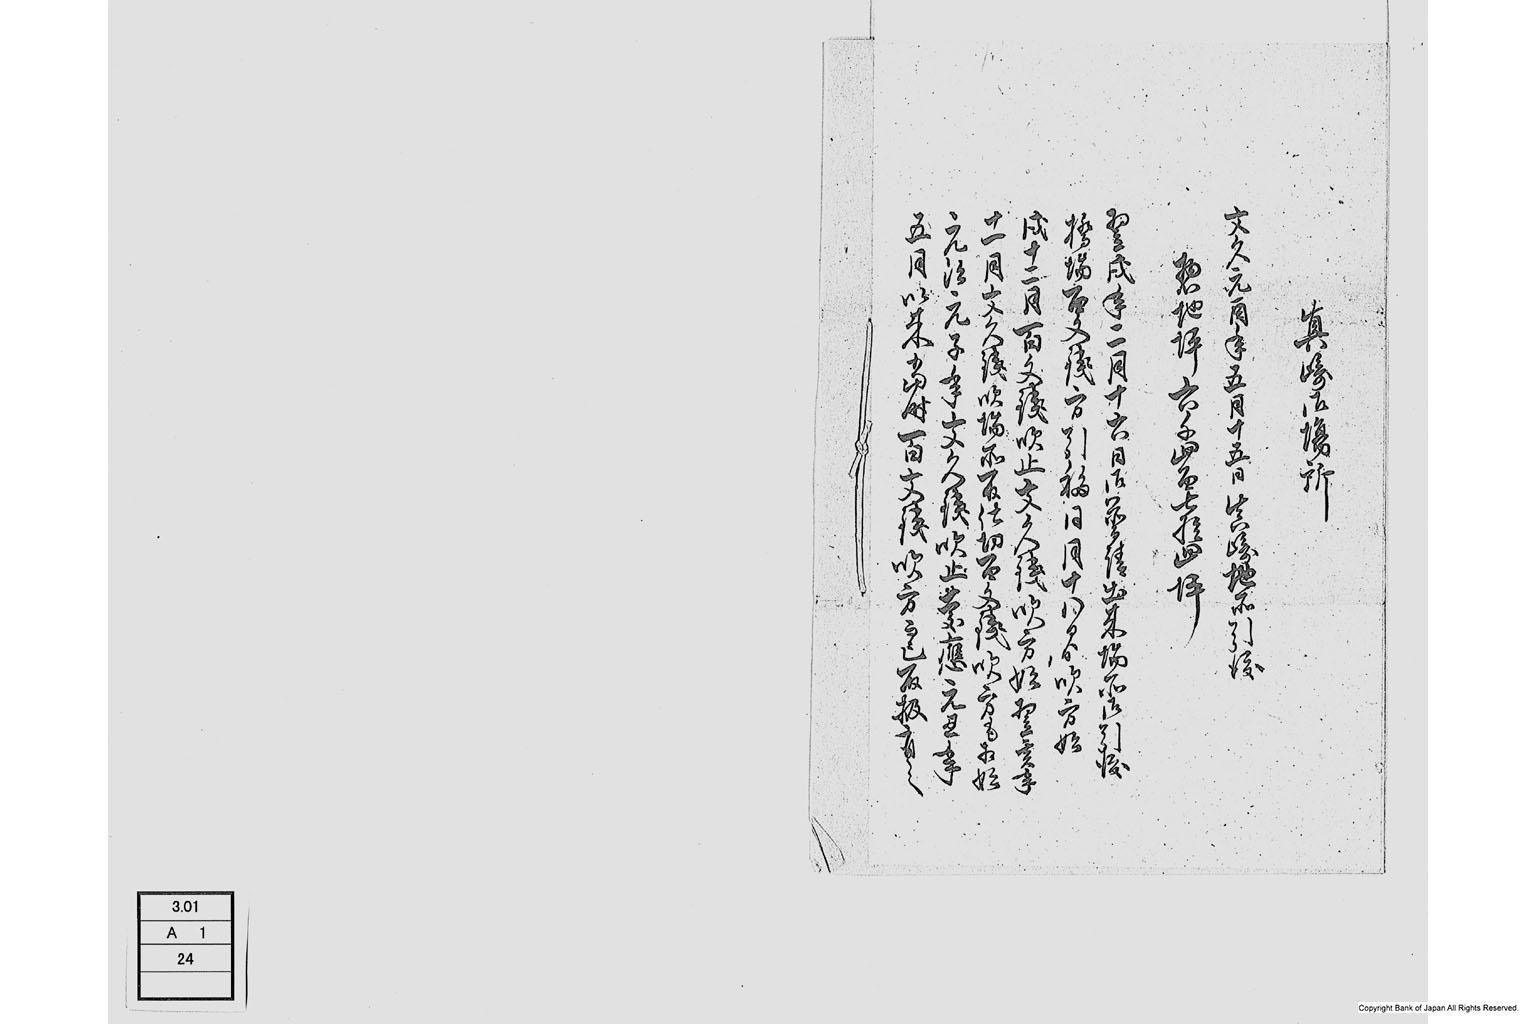 真崎御場所
文久元酉年五月十五日真崎地所引渡
惣地坪六千四百七拾四坪
翌戌年二月十六日御普請出来場所御引渡
橋場百文銭方引移同月十八日ゟ吹方始
戌十二月百文銭吹止文久銭吹方始翌亥年
十一月文久銭吹場所取仕切百文銭吹方も相始
元治元子年文久銭吹止慶應元丑年
五月以来当時百文銭吹方而已取扱有之
3.01
A 1
24
Copyright Bank of Japan All Rights Reserved.